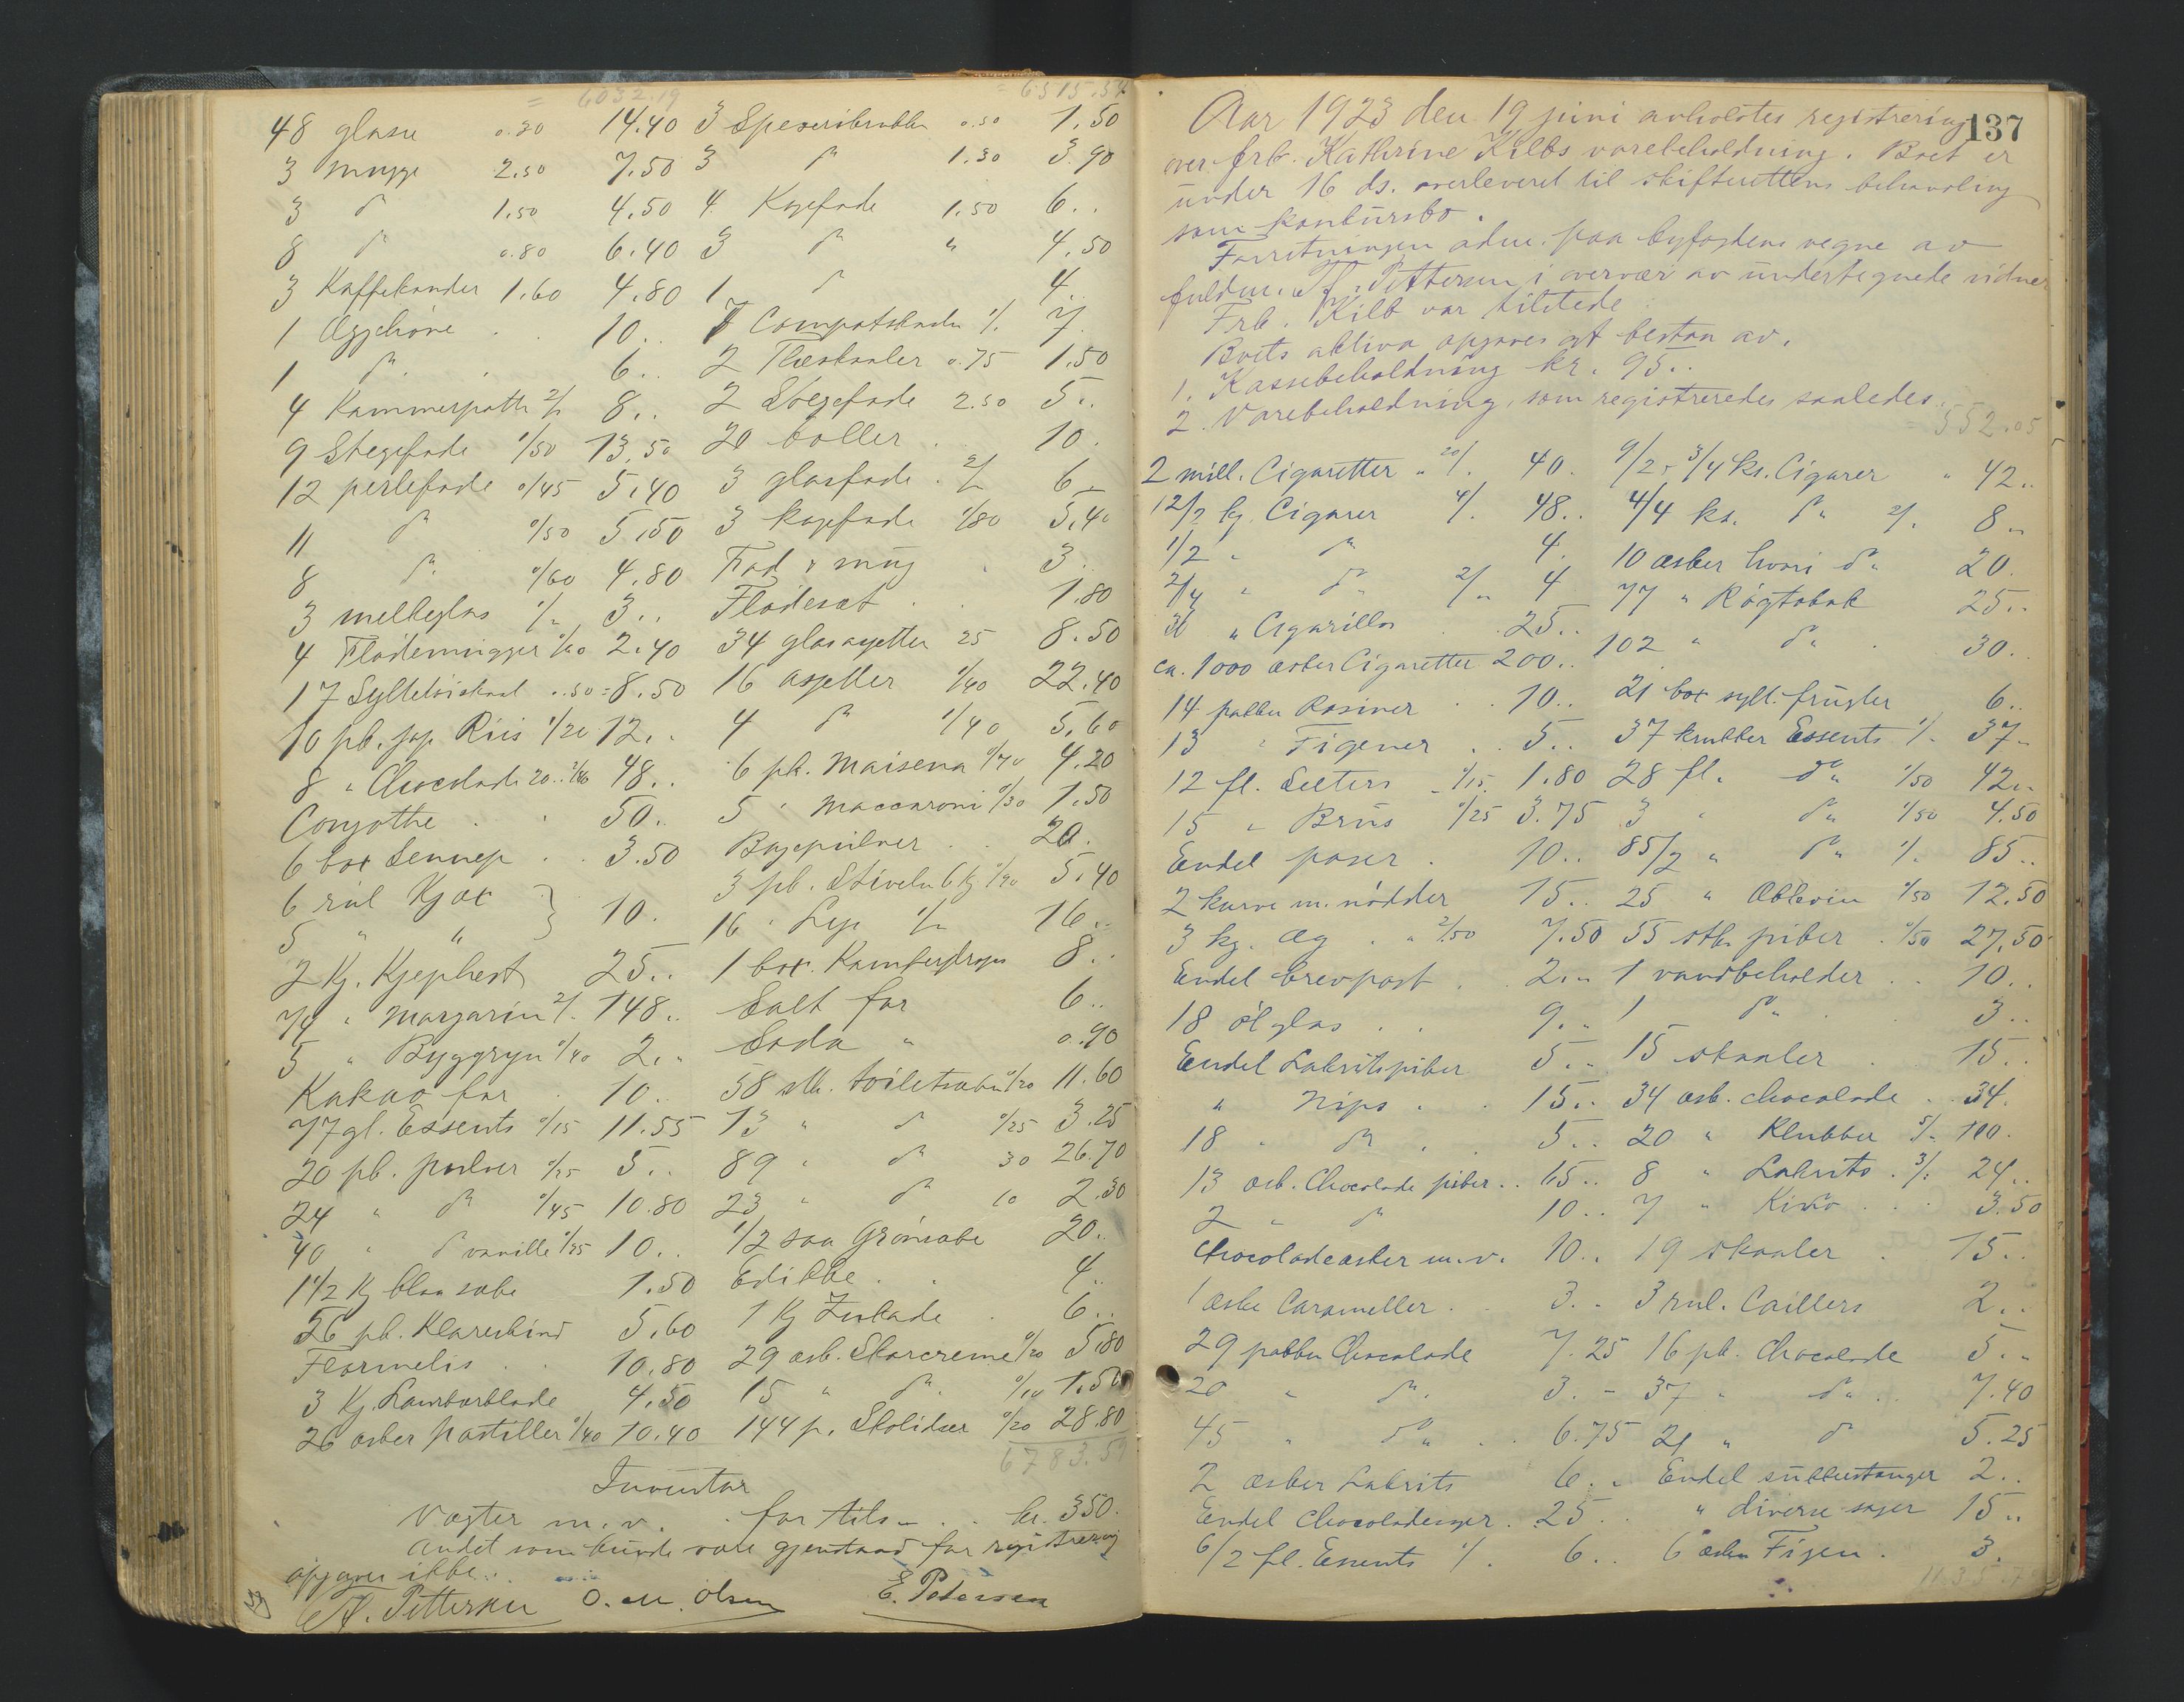 = 6032.19
48 glasse 0.30 14.40
3 mugge 2.50 7.50
3 do 1.50 4.50
8 do 0.80 6.40
3 Kaffekander 1.60 4.80
1 10..
1 do 6..
4 Kammerpotte 2/- 8..
9 Stegefade 1/50 13.50
12 perlefade 0/45 5.40
11 do 0/50 5.50
8 do 0/60 4.80
3 melkeglas 1/- 3..
4 Flødemugger 0/60 2.40
17 0.50 = 8.50
10 pk. jap. Riis 1/20 12..
8 " Chocolade 48..
50..
6 box Sennep 3.50
6 rul Kjæx } 10.
5 " "
2 Kg. 25..
74 " Margarin 2/- 148..
5 " Byggryn 0/40 2..
Kakao for 10.
77 gl. Essents 0/15 11.55
20 pk. pulver 0/25 5..
24 " do 0/45 10.80
40 " do vanille 0/25 10..
1 1/2 Kg blaa sæbe 1.50
26 pk. Klareskind 5.60
10.80
3 Kg. Laurbærblade 4.50
26 æsker Pastiller 0/40 10.40
= 6515.34
3 0.50 1.50
3 do 1.30 3.90
4 Kagefade 1.50 6..
3 do " 4.50
1 do 4..
7 1/- 7.
2 0.75 1.50
2 Stegefade 2.50 5..
20 boller 10.
3 glasfade 2/- 6..
3 kagefade 1/80 5.40
Fad & mug 3.
Flødesæt 1.80
34 glasasjetter 25 8.50
16 asjetter 1/40 22.40
4 do 1/40 5.60
6 pk. Maisena 0/70 4.20
5 " Maccaroni 0/30 1.50
Bagepulver 20.
3 pk. Stivelse 6 kg 0/90 5.40
16 " 1/- 16..
1 box Kamferdrops 8..
Salt for 6..
Soda " 0.90
58 stk. toiletsæbe 0/20 11.60
13 " do 0/25 3.25
89 " do 30 26.70
23 " do 10 2.30
1/2 saa Grønsæbe 20..
Edikke 4..
1 Kg 6..
29 æsk. Skocreme 0/20 5.80
15 " do 0/10 1.50
144 p. Skolidser 0/20 28.80
6783.59
Inventar
Vægter m.v. for tils. kr. 350.
Andet som kunde være gjenstand for registrering
opgaves ikke.
Pettersen O. M. Olsen E. Pedersen
137
Aar 1923 den 19 juni avholdtes registrering
over frk. Kathrine Kilbs varebeholdning. Boet er
under 16 ds. overleveret til skifterettens behandling
som konkursbo.
Forretningen adm. paa byfogdens vegne av
fuldm. Pettersen i overvær av undertegnede vidner
Frk. Kilb var tilstede
Boets aktiva opgaves at bestaa av.
1. Kassebeholdning kr. 95..
2. Varebeholdning, som registreredes saaledes.
= 552.05
2 mill. Cigaretter " 20/- 40.
12/2 ks. Cigarer 4/- 48..
1/2 " do 4.
2/4 " do 2/- 4
36 " Cigarillos 25..
ca. 1000 æsker Cigaretter 200..
14 pakker Rosiner 10..
13 " Figener 5..
12 fl. Selters 0/15 1.80
15 " Brus 0/25 3.75
Endel poser 10..
2 kurve m. nødder 15..
3 kg. Æg " 2/50 7.50
Endel brevpost 2..
18 ølglas 9..
Endel Lakritspiber 5..
" Nips 15..
18 " do 5..
13 æsk. Chocolade piber 15..
2 " do 10..
Chocoladeæsker m.v. 10..
1 æske Carameller 3..
29 pakker Chocolade 7.25
20 " do 3.-
45 " do 6.75
2 æsker Lakrits 6..
Endel 25..
6/2 fl. Essents 1/- 6..
9/2 - 3/4 ks. Cigarer " 42..
4/4 ks. do 2/- 8..
10 æsker do 20.
77 " Røgtobak 25..
102 " do 30..
21 box sylt. frugter 6..
37 krukker Essents 1/- 37..
28 fl. do 1/50 42..
3 " do 1/50 4.50
85/2 " do 1/- 85..
25 " Æblevin 0/50 12.50
55 stk. piber 0/50 27.50
1 vandbeholder 10..
1 do 3..
15 skaaler 15..
34 æsk. chocolade 34.
20 " Klubber 5/- 100.
8 " Lakrits 3/- 24..
7 " 3.50
19 skaaler 15..
3 rul. Caillers 2..
16 pk. Chocolade 5..
37 " do 7.40
21 " do 5.25
Endel sukkerstanger 2..
" diverse sager 15..
6 æsker Figen 3.